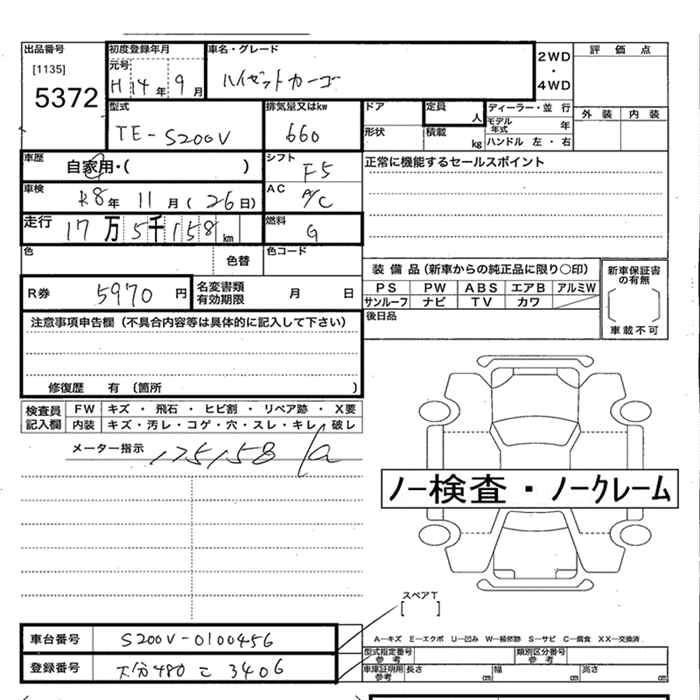 出品番号
[1135]
5372
初度登録年月
元号
H 14年 9月
車名・グレード
ハイゼットカーゴ
2WD
・
4WD
評価点
外装 内装
型式
TE-S200V
排気量又はkw
660
ドア
形状
定員
人
積載
kg
ディーラー・並行
モデル年式 年
ハンドル 左・右
車歴
自家用・( )
シフト
F5
正常に機能するセールスポイント
車検
R8年 11月(26日)
AC
A/C
走行
17万5千158km
燃料
G
色
色替
色コード
R券
5970円
名変書類有効期限
月 日
装備品(新車からの純正品に限り○印)
PS PW ABS エアB アルミW
サンルーフ ナビ TV カワ
後日品
新車保証書の有無
車載不可
注意事項申告欄(不具合内容等は具体的に記入して下さい)
修復歴 有(箇所 )
検査員記入欄
FW キズ・飛石・ヒビ割・リペア跡・X要
内装 キズ・汚レ・コゲ・穴・スレ・キレ・破レ
メーター指示
175158
ノー検査・ノークレーム
スペアT
[ ]
車台番号
S200V-0100456
登録番号
大分480こ3406
A-キズ E-エクボ U-凹み W-補修跡 S-サビ C-腐食 XX-交換済
型式指定番号
参考
類別区分番号
参考
車庫証明用
参考
長さ cm 幅 cm 高さ cm